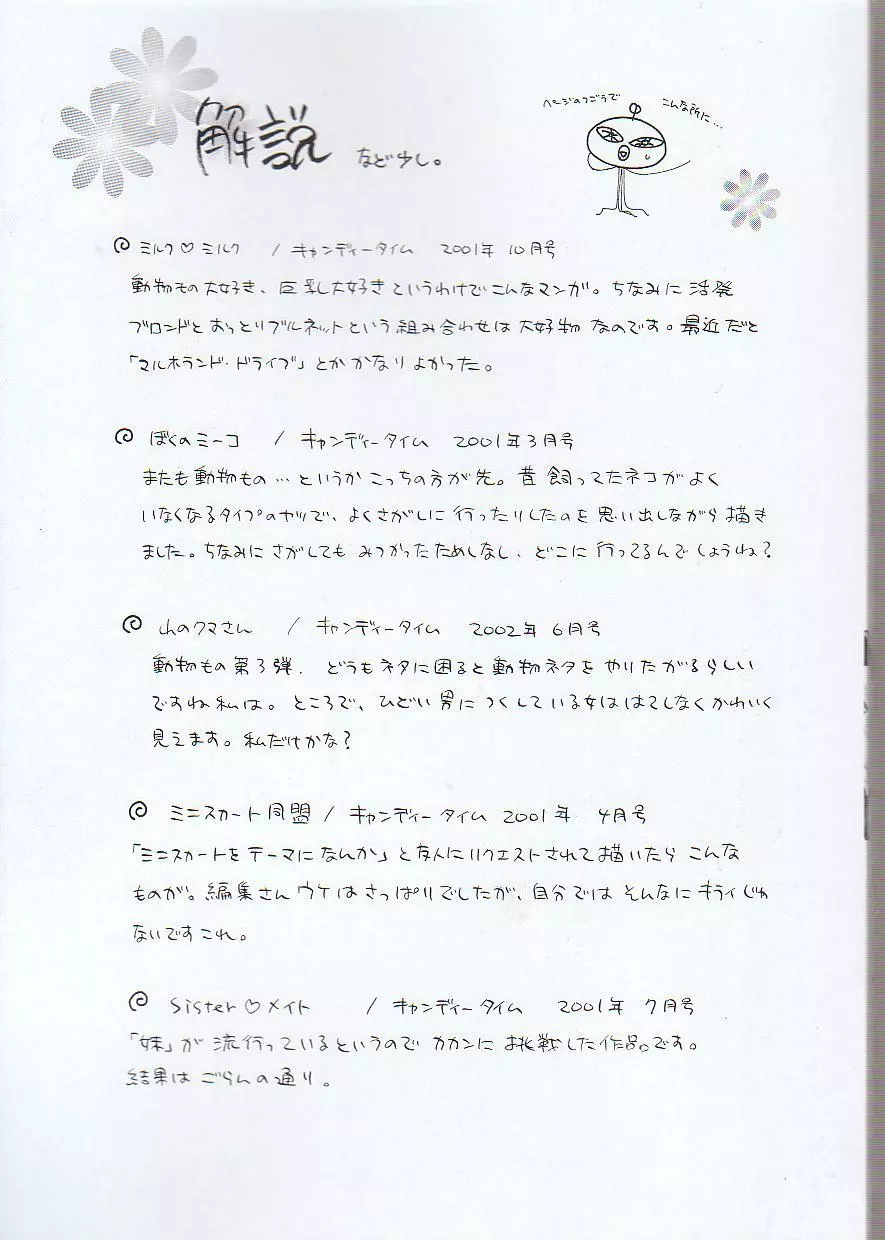 ページのつごうで
こんな所に…
解説 など少し。
ミルク♡ミルク / キャンディータイム 2001年 10月号
動物もの大好き、巨乳大好きというわけでこんなマンガ。ちなみに活発
ブロンドとおっとりブルネットという組み合わせは大好物なのです。最近だと
「マルホランド・ドライブ」とかかなりよかった。
ぼくのミーコ / キャンディータイム 2001年3月号
またも動物もの…というかこっちの方が先。昔飼ってたネコがよく
いなくなるタイプのヤツで、よくさがしに行ったりしたのを思い出しながら描き
ました。ちなみにさがしてもみつかったためしなし、どこに行ってるんでしょうね?
山のクマさん / キャンディータイム 2002年6月号
動物もの第3弾. どうもネタに困ると動物ネタをやりたがるらしい
ですね私は。ところで、ひどい男につくしている女ははてしなくかわいく
見えます。私だけかな?
ミニスカート同盟 / キャンディータイム 2001年 4月号
「ミニスカートをテーマになんか」と友人にリクエストされて描いたらこんな
ものが。編集さんウケはさっぱりでしたが、自分ではそんなにキライじゃ
ないですこれ。
Sister♡メイト / キャンディータイム 2001年 7月号
「妹」が流行っているというのでカカンにお挑戦した作品。です。
結果はごらんの通り。